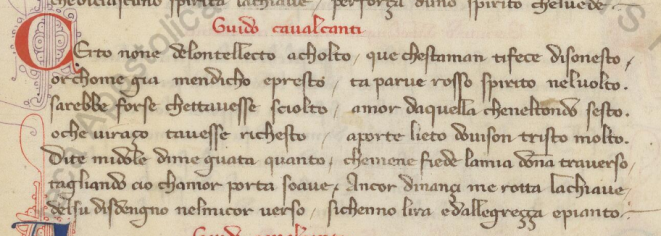 che diciascuno spirito lachiave, per força duno spirito chelvede.
Guido caualcanti
CErto none delontellecto acholto, que chestaman tifece disonesto,
orchome gia mendicho epresto, ta parue rosso spirito neluolto.
sarebbe forse chettauesse sciolto, amor daquella cheneltondo sesto.
oche uiraço tauesse richesto aporte lieto douison tristo molto.
Dite midole dime guata quanto, chemene fiede lamia dona trauerso,
tagliando cio chamor porta soaue, Ancor dinanç me rotta lachiaue,
delsu disdengno nelmicor uerso, sichenno lira edallegrezza epianto.